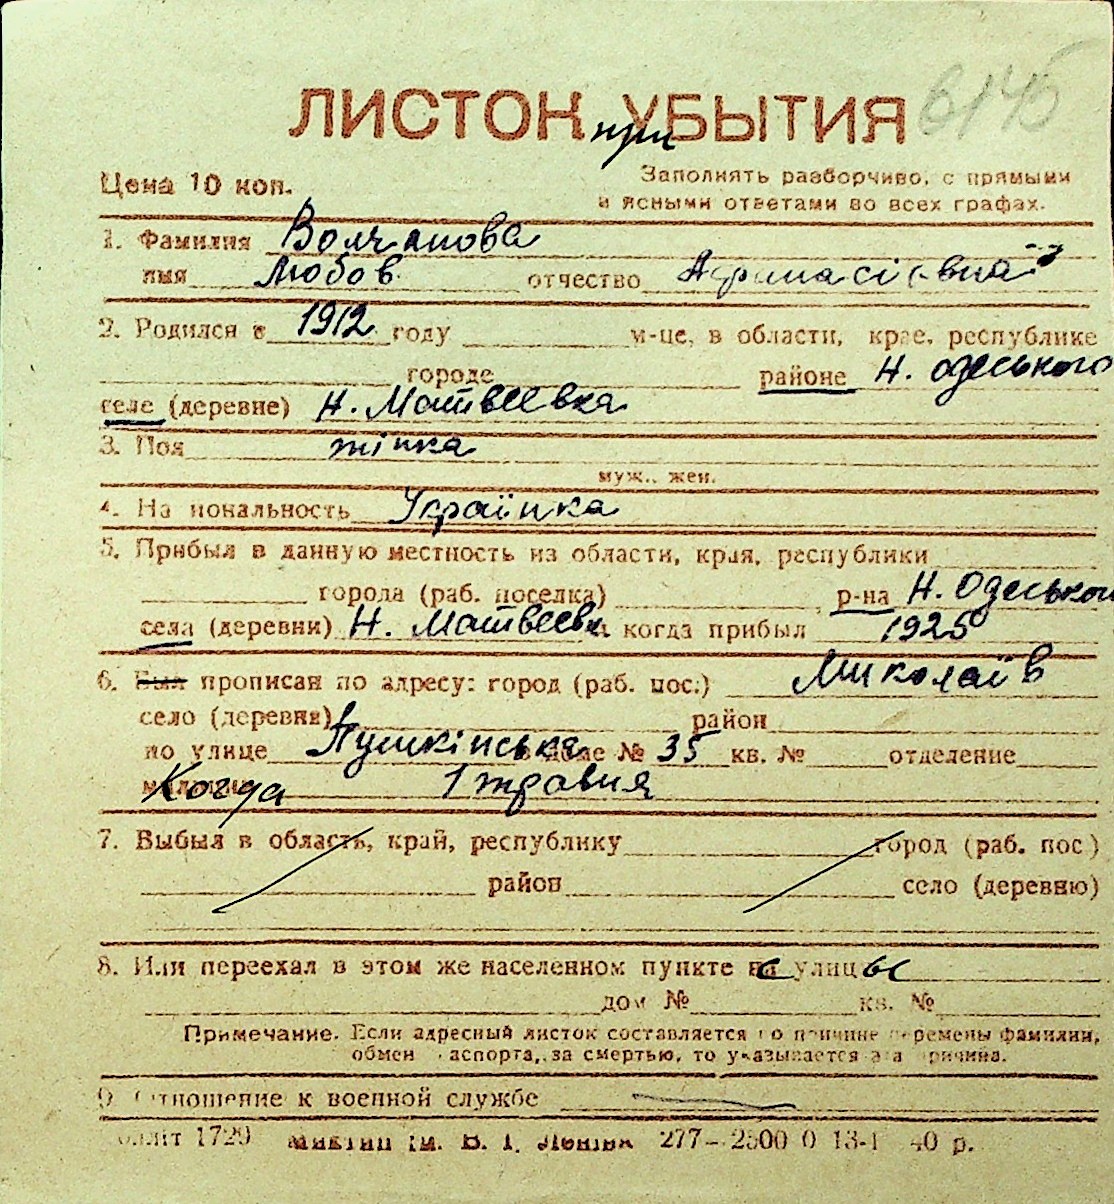 ЛИСТОК при УБЫТИЯ 6145
Цена 10 коп.
Заполнять разборчиво, с прямыми
и ясными ответами во всех графах.
1. Фамилия Волчанова
имя Любов отчество
2. Родился в 1912 году м-це, в области, крае, республике
городе районе Н. Одеського
селе (деревне) Н. Матвеевка
3. Пол жінка
муж., жен.
4. Национальность Українка
5. Прибыл в данную местность из области, края, республики
города (раб. поселка) р-на Н. Одеського
села (деревни) Н. Матвеевка когда прибыл 1925
6. Был прописан по адресу: город (раб. пос.) Миколаїв
село (деревня) район
по улице Пушкінська в доме № 35 кв. № отделение
милиции Когда 1 травня
7. Выбыл в область, край, республику город (раб. пос)
район село (деревню)
8. Или переехал в этом же населенном пункте с улицы
дом № кв. №
Примечание. Если адресный листок составляется по причине перемены фамилии,
обмен паспорта, за смертью, то указывается эта причина.
9. Отношение к военной службе
1729 ім. В. І. Леніна 277—2500 0 13-І 40 р.